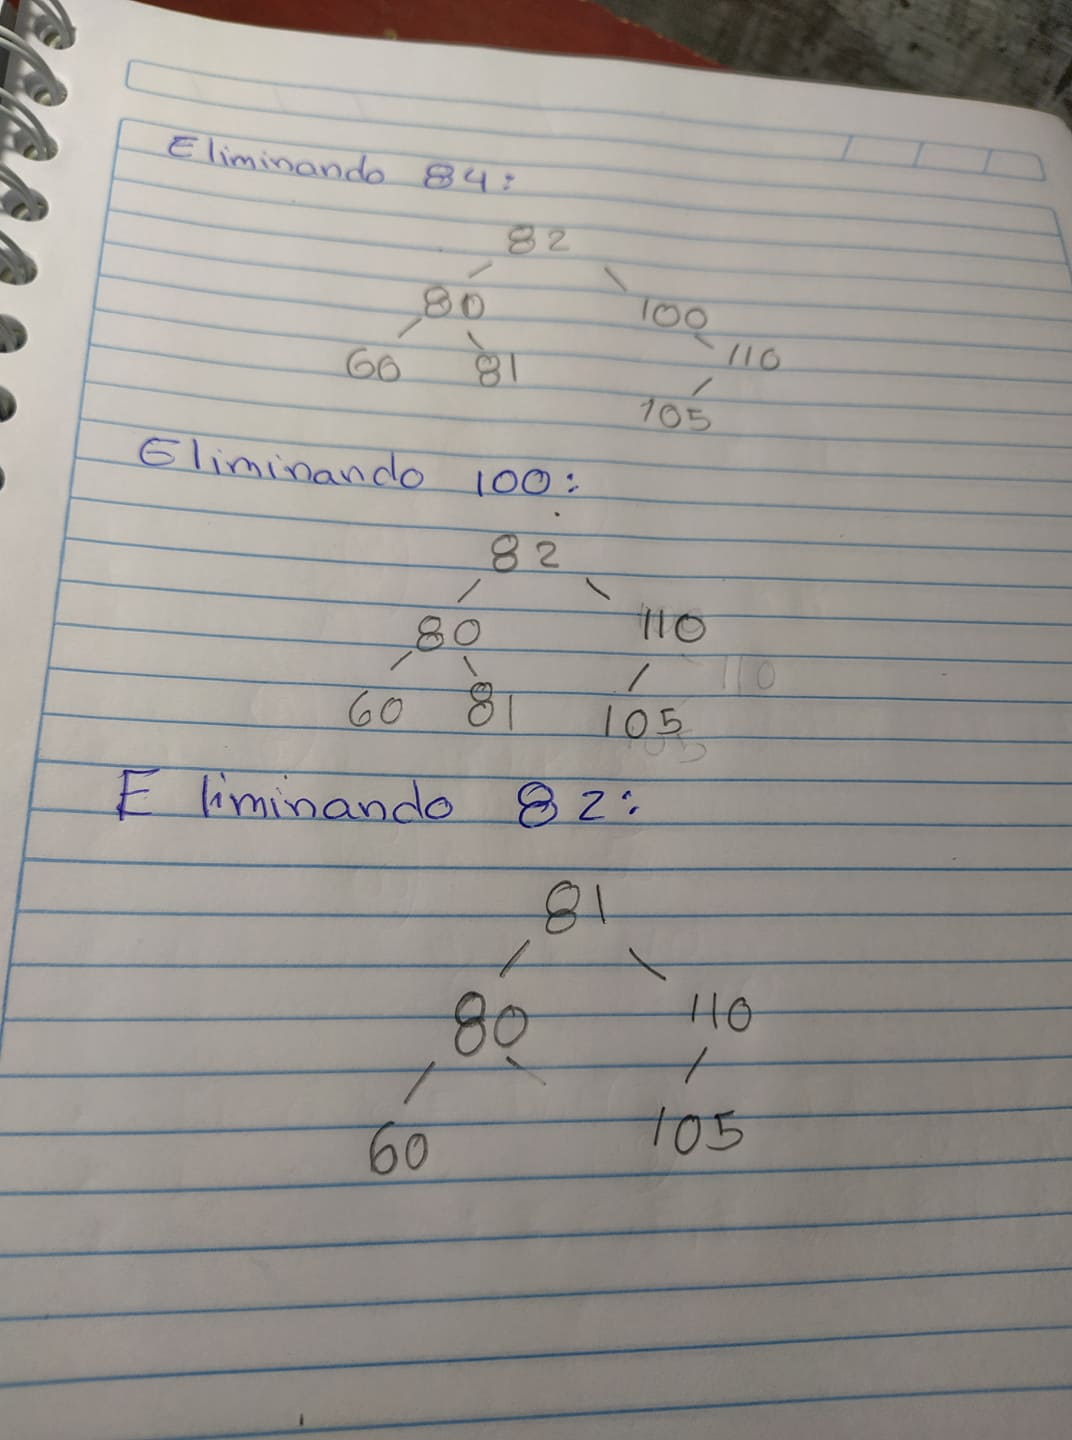 Eliminando 84:
82
80 100
60 81 110
105
Eliminando 100:
82
80 110
110
60 81 105
105
Eliminando 82:
81
80 110
60 105